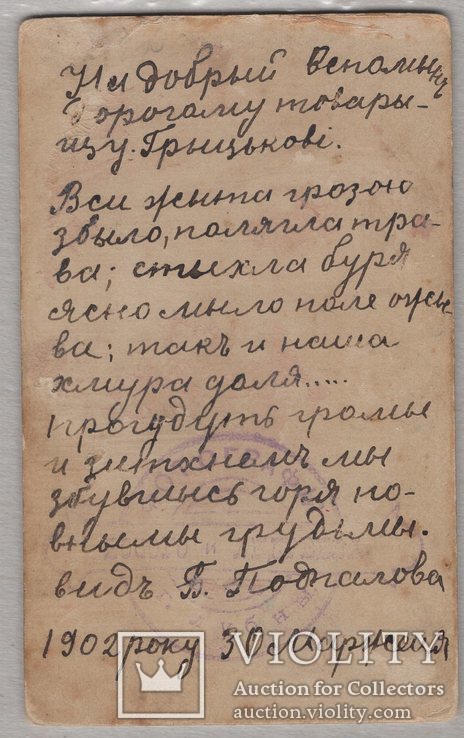 На добрый Вспомынъ
Дорогому товары-
щу. Грыцькові.
Вси жыта грозою
збыло, полягла тра-
ва; стыхла буря
ясно мыло поле ожы-
ва; такъ и наша
хмура доля.....
прогудуть громы
и зитхнемъ мы
збувшись горя по-
вными грудьмы.
видъ Б. Подпалова
1902 року 30 Марженя
VIOLITY
Auction for Collectors
auction.violity.com